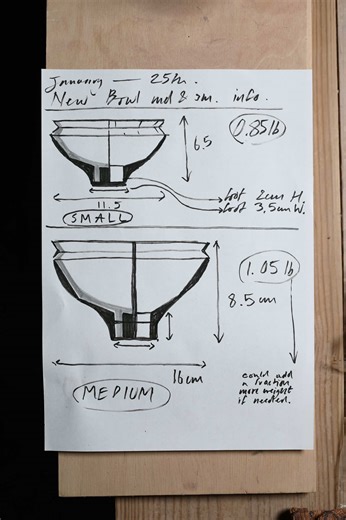 January — 25th.
New Bowl md & sm. info.
0.85lb
6.5
foot 2cm H.
foot 3.5cm W.
11.5
SMALL
1.05lb
8.5cm
16cm
could add
a fraction
more weight
if needed.
MEDIUM